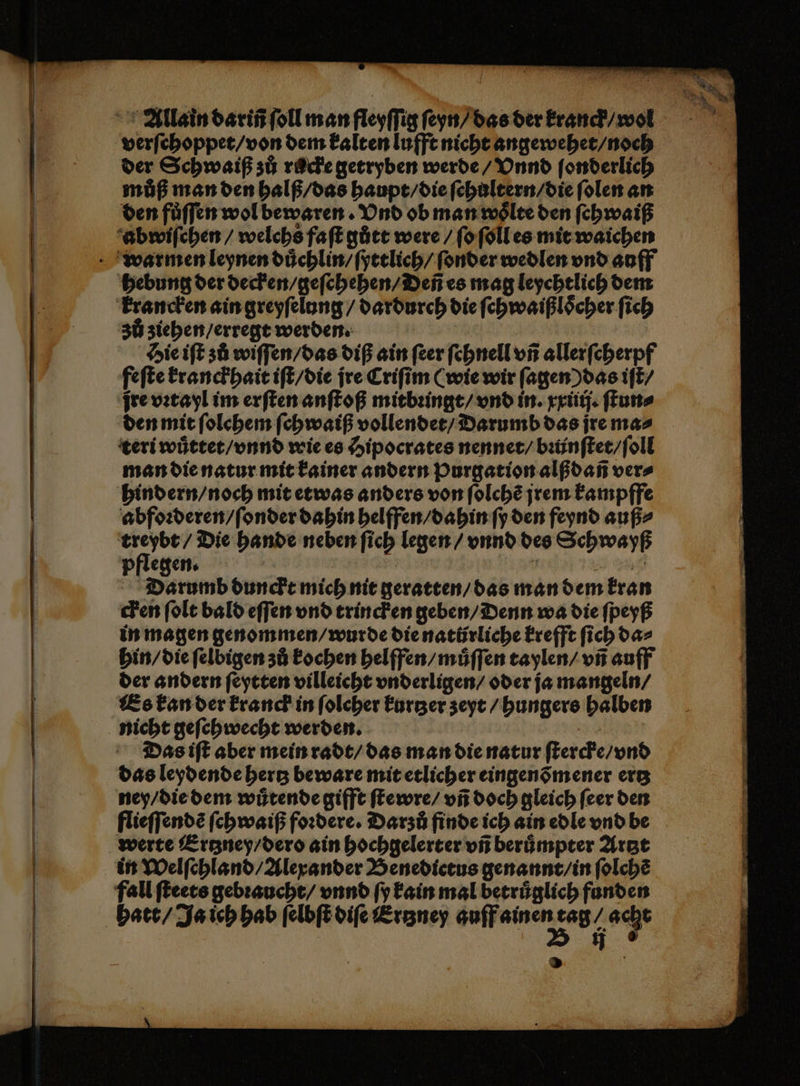 Allain dariñ ſoll man fleyſſig ſeyn/das der kranck/wol
verſchoppet/von dem kalten lufft nicht angewehet/noch
der Schwaiß zů rucke getryben werde/Vnnd ſonderlich
můß man den halß/das haupt/die ſchultern/die ſolen an
den fůſſen wol bewaren. Vnd ob man woͤlte den ſchwaiß
abwiſchen/welchs faſt gůtt were/ſo ſoll es mit waichen
warmen leynen důchlin/ſyttlich/ſonder wedlen vnd auff
hebung der decken/geſchehen/Deñ es mag leychtlich dem
krancken ain greyſelung/dardurch die ſchwaißloͤcher ſich
zů ziehen/erregt werden.
Hie iſt zů wiſſen/das diß ain ſeer ſchnell vñ allerſcherpf
feſte kranckhait iſt/die jre Criſim (wie wir ſagen) das iſt/
jre vꝛtayl im erſten anſtoß mitbꝛingt/vnd in. xxiiij. ſtun⸗
den mit ſolchem ſchwaiß vollendet/Darumb das jre ma⸗
teri wuͤttet/vnnd wie es Hipocrates nennet/bꝛünſtet/ſoll
man die natur mit kainer andern Purgation alßdañ ver⸗
hindern/noch mit etwas anders von ſolchē jrem kampffe
abfoꝛderen/ſonder dahin helffen/dahin ſy den feynd auß⸗
treybt/Die hande neben ſich legen/vnnd des Schwayß
pflegen.
Darumb dunckt mich nit geratten/das man dem kran
cken ſolt bald eſſen vnd trincken geben/Denn wa die ſpeyß
in magen genommen/wurde die natürliche krefft ſich da⸗
hin/die ſelbigen zů kochen helffen/muͤſſen taylen/vñ auff
der andern ſeytten villeicht vnderligen/oder ja mangeln/
Es kan der kranck in ſolcher kurtzer zeyt/hungers halben
nicht geſchwecht werden.
Das iſt aber mein radt/das man die natur ſtercke/vnd
das leydende hertz beware mit etlicher eingenõmener ertz
ney/die dem wuͤtende gifft ſtewre/vñ doch gleich ſeer den
flieſſendē ſchwaiß foꝛdere. Darzů finde ich ain edle vnd be
werte Ertzney/dero ain hochgelerter vñ beruͤmpter Artzt
in Welſchland/Alexander Benedictus genannt/in ſolchē
fall ſteets gebꝛaucht/vnnd ſy kain mal betruͤglich funden
hatt/Ja ich hab ſelbſt diſe Ertzney auff ainen tag/acht
B ij